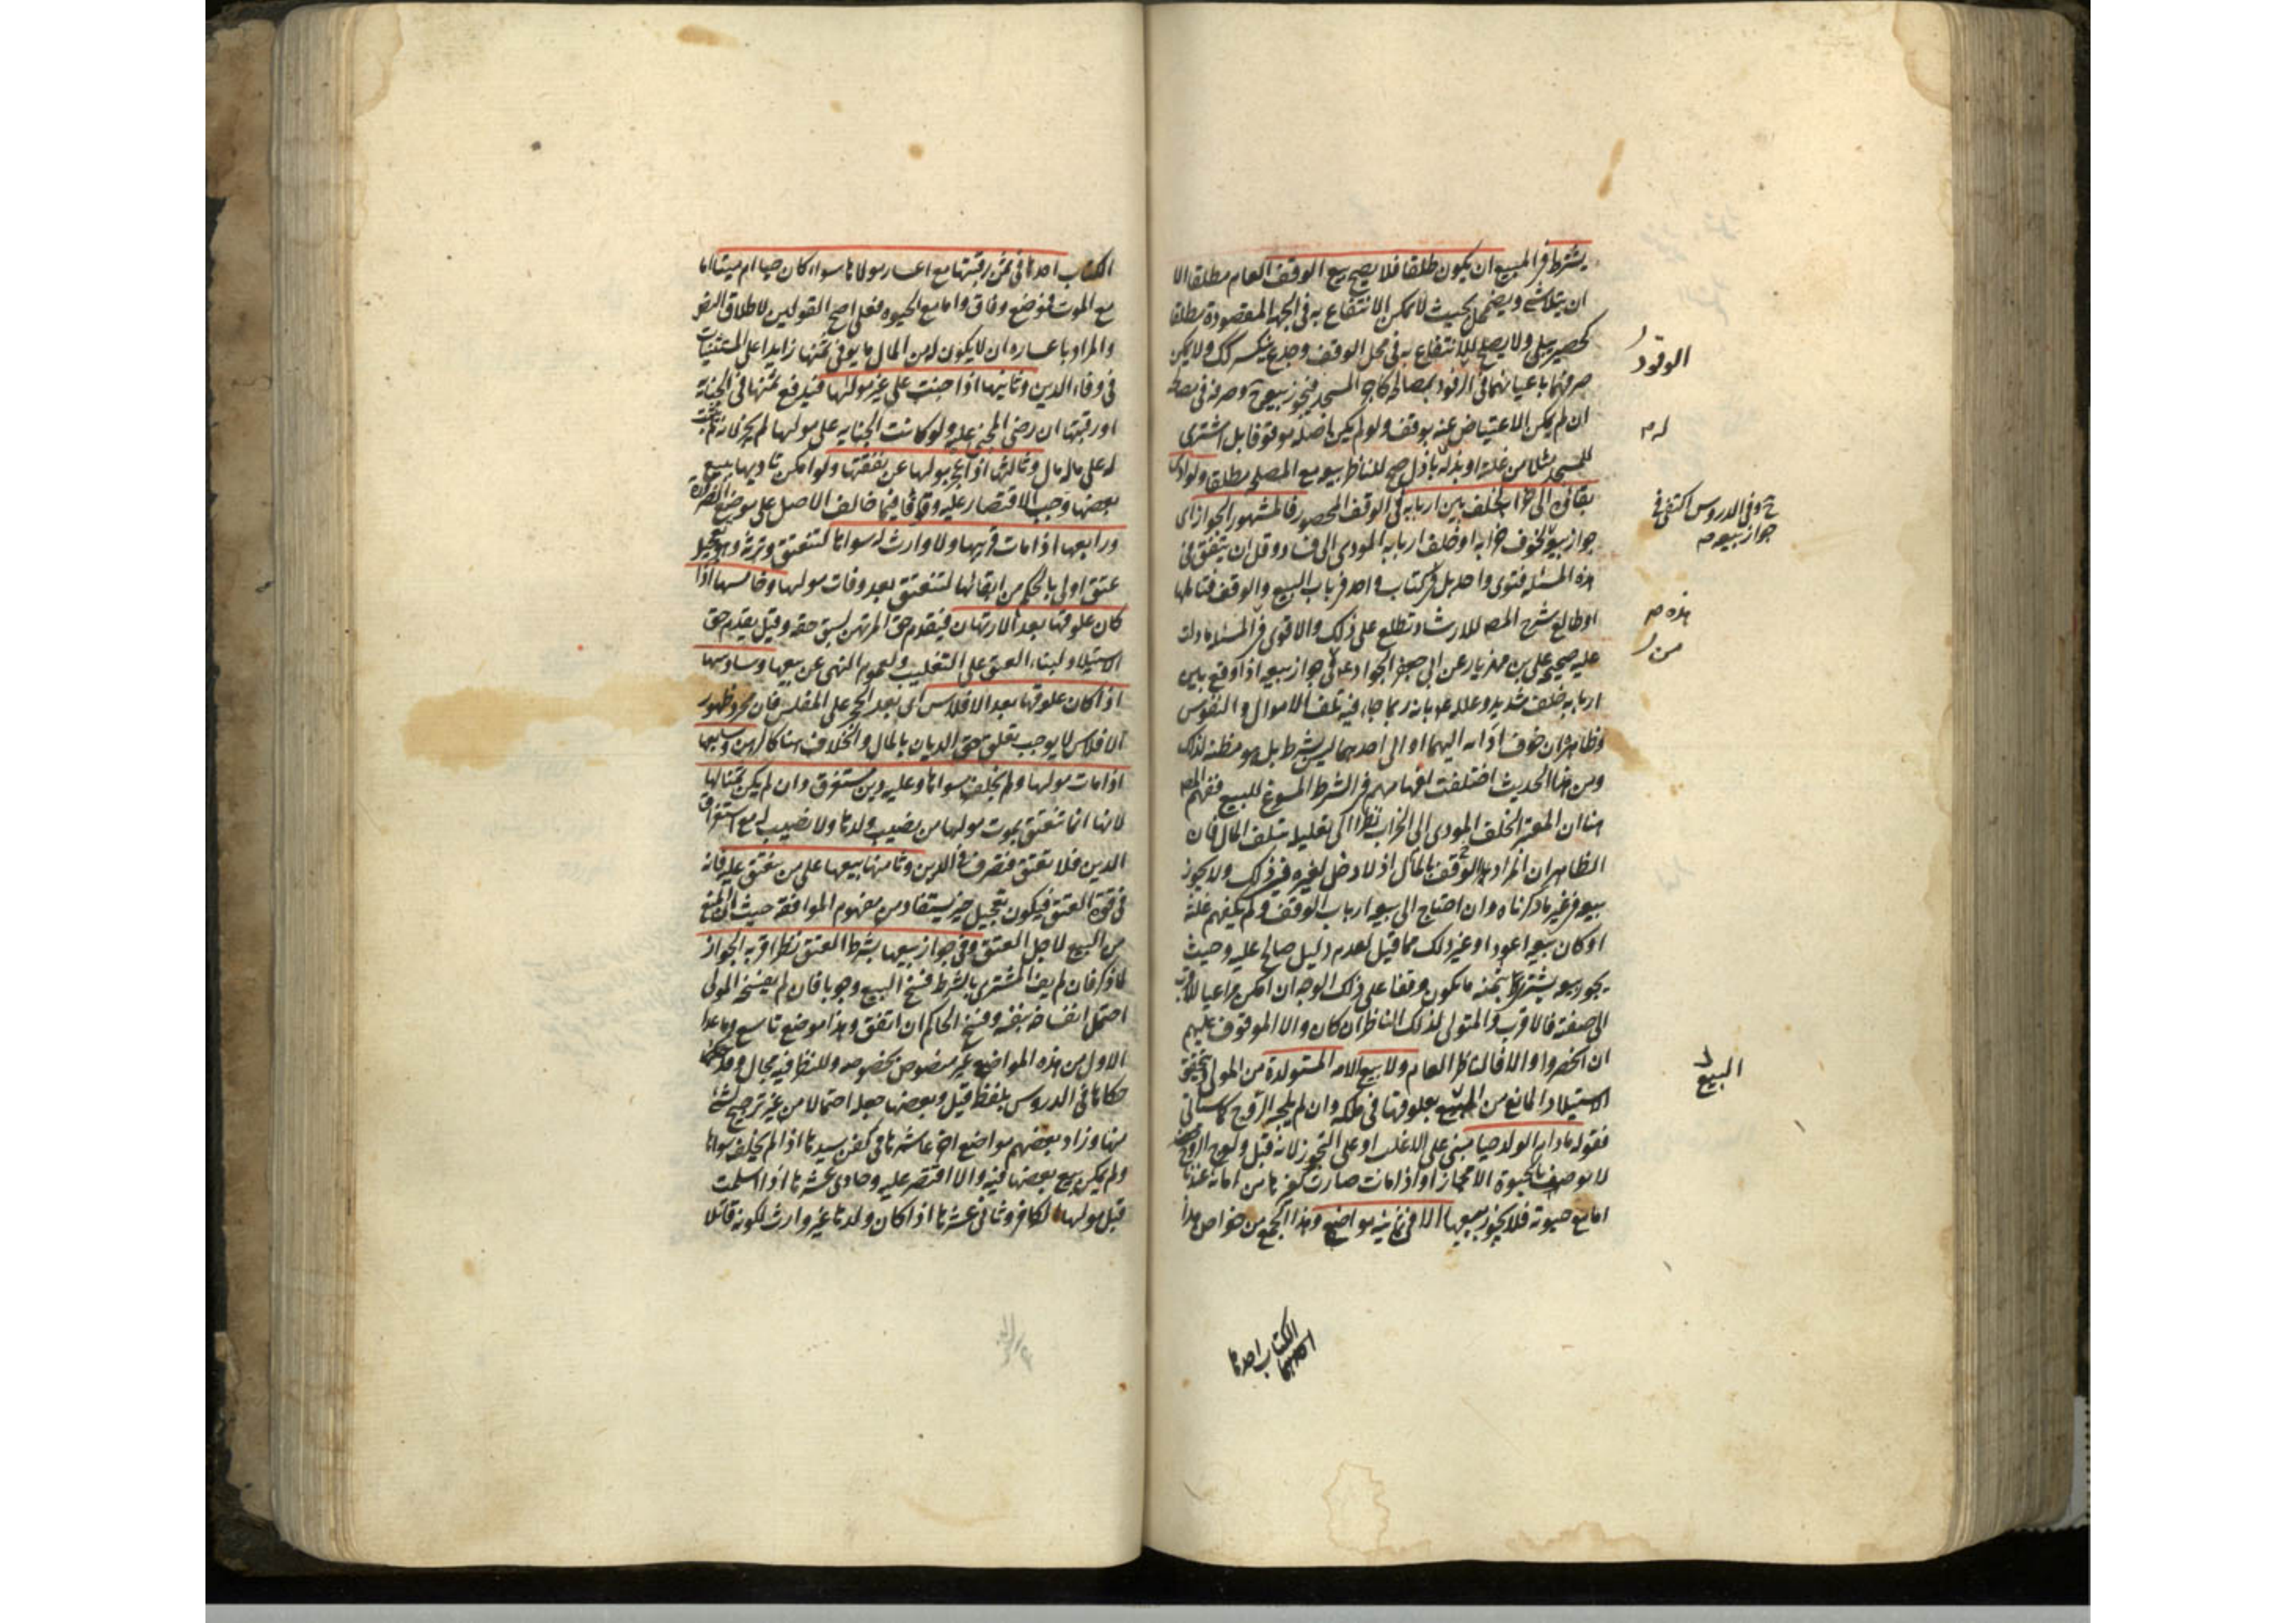 يشترط في المبيع ان يكون طلقا فلا يصح بيع الوقف العام مطلقا الا
ان يتلاشى ويضمحل بحيث لا يمكن الانتفاع به في الجهة المقصودة مطلقا
كحصير يبلى ولا يصلح للانتفاع به في محل الوقف وجذع ينكسر كك ولا يمكن
صرفهما باعيانهما في الوقود بمصالح كاجر المسجد فيجوز بيعه ح وصرفه في مصالحه
ان لم يمكن الاعتياض عنه بوقف ولو لم يكن اصله موقوفا بل اشترى
للمسجد مثلا من غلته او بذله باذل صح للناظر بيعه مع المصلحة مطلقا ولو ادى
بقاؤه الى خرابه لخلف بين اربابه في الوقف المحصور فالمشهور الجواز اى
جواز بيعه لخوف خرابه او خلف اربابه المودى الى فساد وقل ان يتفق في
هذه المسئلة فتوى واحد بل في كتاب واحد في باب البيع والوقف فتاملها
او طالع شرح المصـ للارشاد تطلع على ذلك والاقوى في المسئلة ما دلت
عليه صحيحة علي بن مهزيار عن ابى جعفر الجواد ع في جواز بيعه اذا وقع بين
اربابه خلف شديد وعلله ع بانه ربما جاء فيه تلف الاموال والنفوس
وظاهره ان خوف اداه اليهما او الى احدهما ليس بشرط بل هو مظنة لذلك
ومن هذا الحديث اختلفت افهامهم في الشرط المسوغ للبيع ففهم المصـ
هنا ان المعتبر الخلف المودى الى الخراب نظرا الى تعليله بتلف المال فان
الظاهر ان المراد بالمال الوقف اذ لا دخل لغيره في ذلك ولا يجوز
بيعه في غير ما ذكرناه وان احتاج الى بيعه ارباب الوقف ولم يكفهم غلته
او كان بيعه اعود او غير ذلك مما قيل لعدم دليل صالح عليه وحيث
يجوز بيعه يشترى بثمنه ما يكون وقفا على ذلك الوجه ان امكن مراعيا للاقرب
الى صفته فالاقرب والمتولى لذلك الناظر ان كان والا الموقوف عليهم
ان انحصروا والا فالناظر العام ولا بيع الامة المستولدة من المولى ويتحقق
الاستيلاد المانع من البيع بعلوقها في ملكه وان لم يلجه الروح كما سياتى
فقوله ما دام الولد حيا مبنى على الاغلب او على التجوز لانه قبل ولوج الروح
لا يوصف بالحيوة الا مجازا او اذا مات صارت كغيرها من امائه عندنا
اما مع حيوته فلا يجوز بيعها الا في ثمانية مواضع وهذا الجمع من خواص هذا
الوقود
ح وفي الدروس اكتفى في
جواز بيعه م
هذه م
من
البيع
الكتاب احدها
الكتاب احدها في ثمن رقبتها مع اعسار مولاها سواء كان حيا ام ميتا اما
مع الموت فموضع وفاق واما مع الحيوة فعلى اصح القولين لاطلاق النص
والمراد باعساره ان لا يكون له من المال ما يوفى ثمنها زايدا على المستثنيات
في وفاء الدين وثانيها اذا جنت على غير مولاها فيدفع ثمنها في الجناية
او رقبتها ان رضى المجنى عليه ولو كانت الجناية على مولاها لم يجز لانه لا يثبت
له على ماله مال وثالثها اذا عجز مولاها عن نفقتها ولو امكن تاديها ببيع
بعضها وجب الاقتصار عليه وقوفا فيما خالف الاصل على موضع الضرورة
ورابعها اذا مات قريبها ولا وارث له سواها لتنعتق وترثه وهو تعجيل
عتق اولى بالحكم من ابقائها لتنعتق بعد وفات مولاها وخامسها اذا
كان علوقها بعد الارتهان فيقدم حق المرتهن لسبق حقه وقيل يقدم حق
الاستيلاد لبناء العتق على التغليب ولعموم النهى عن بيعها وسادسها
اذا كان علوقها بعد الافلاس اى بعد الحجر على المفلس فان مجرد ظهور
الافلاس لا يوجب تعلق حق الديان بالمال والخلاف هنا كالرهن وسابعها
اذا مات مولاها ولم يخلف سواها وعليه دين مستغرق وان لم يكن ثمنا لها
لانها انما تنعتق بموت مولاها من نصيب ولدها ولا نصيب له مع استغراق
الدين فلا تنعتق فتصرف في الدين وثامنها بيعها على من تنعتق عليه فانه
في قوة العتق فيكون تعجيل خير يستفاد من مفهوم الموافقة حيث ان المنع
من البيع لاجل العتق وفي جواز بيعها بشرط العتق نظر اقربه الجواز
لما ذكر فان لم يف المشترى بالشرط فسخ البيع وجوبا فان لم يفسخه المولى
احتمل انفساخه بنفسه وفسخ الحاكم ان اتفق وهذا موضع تاسع وما عدا
الاول من هذه المواضع غير منصوص بخصوصه وللنظر فيه مجال وقد
حكاها في الدروس بلفظ قيل وبعضها جعله احتمالا من غير ترجيح لشئ
منها وزاد بعضهم مواضع اخر عاشرها في كفن سيدها اذا لم يخلف سواها
ولم يمكن بيع بعضها فيه والا اقتصر عليه وحادى عشرها اذا اسلمت
قبل مولاها الكافر وثانى عشرها اذا كان ولدها غير وارث لكونه قاتلا